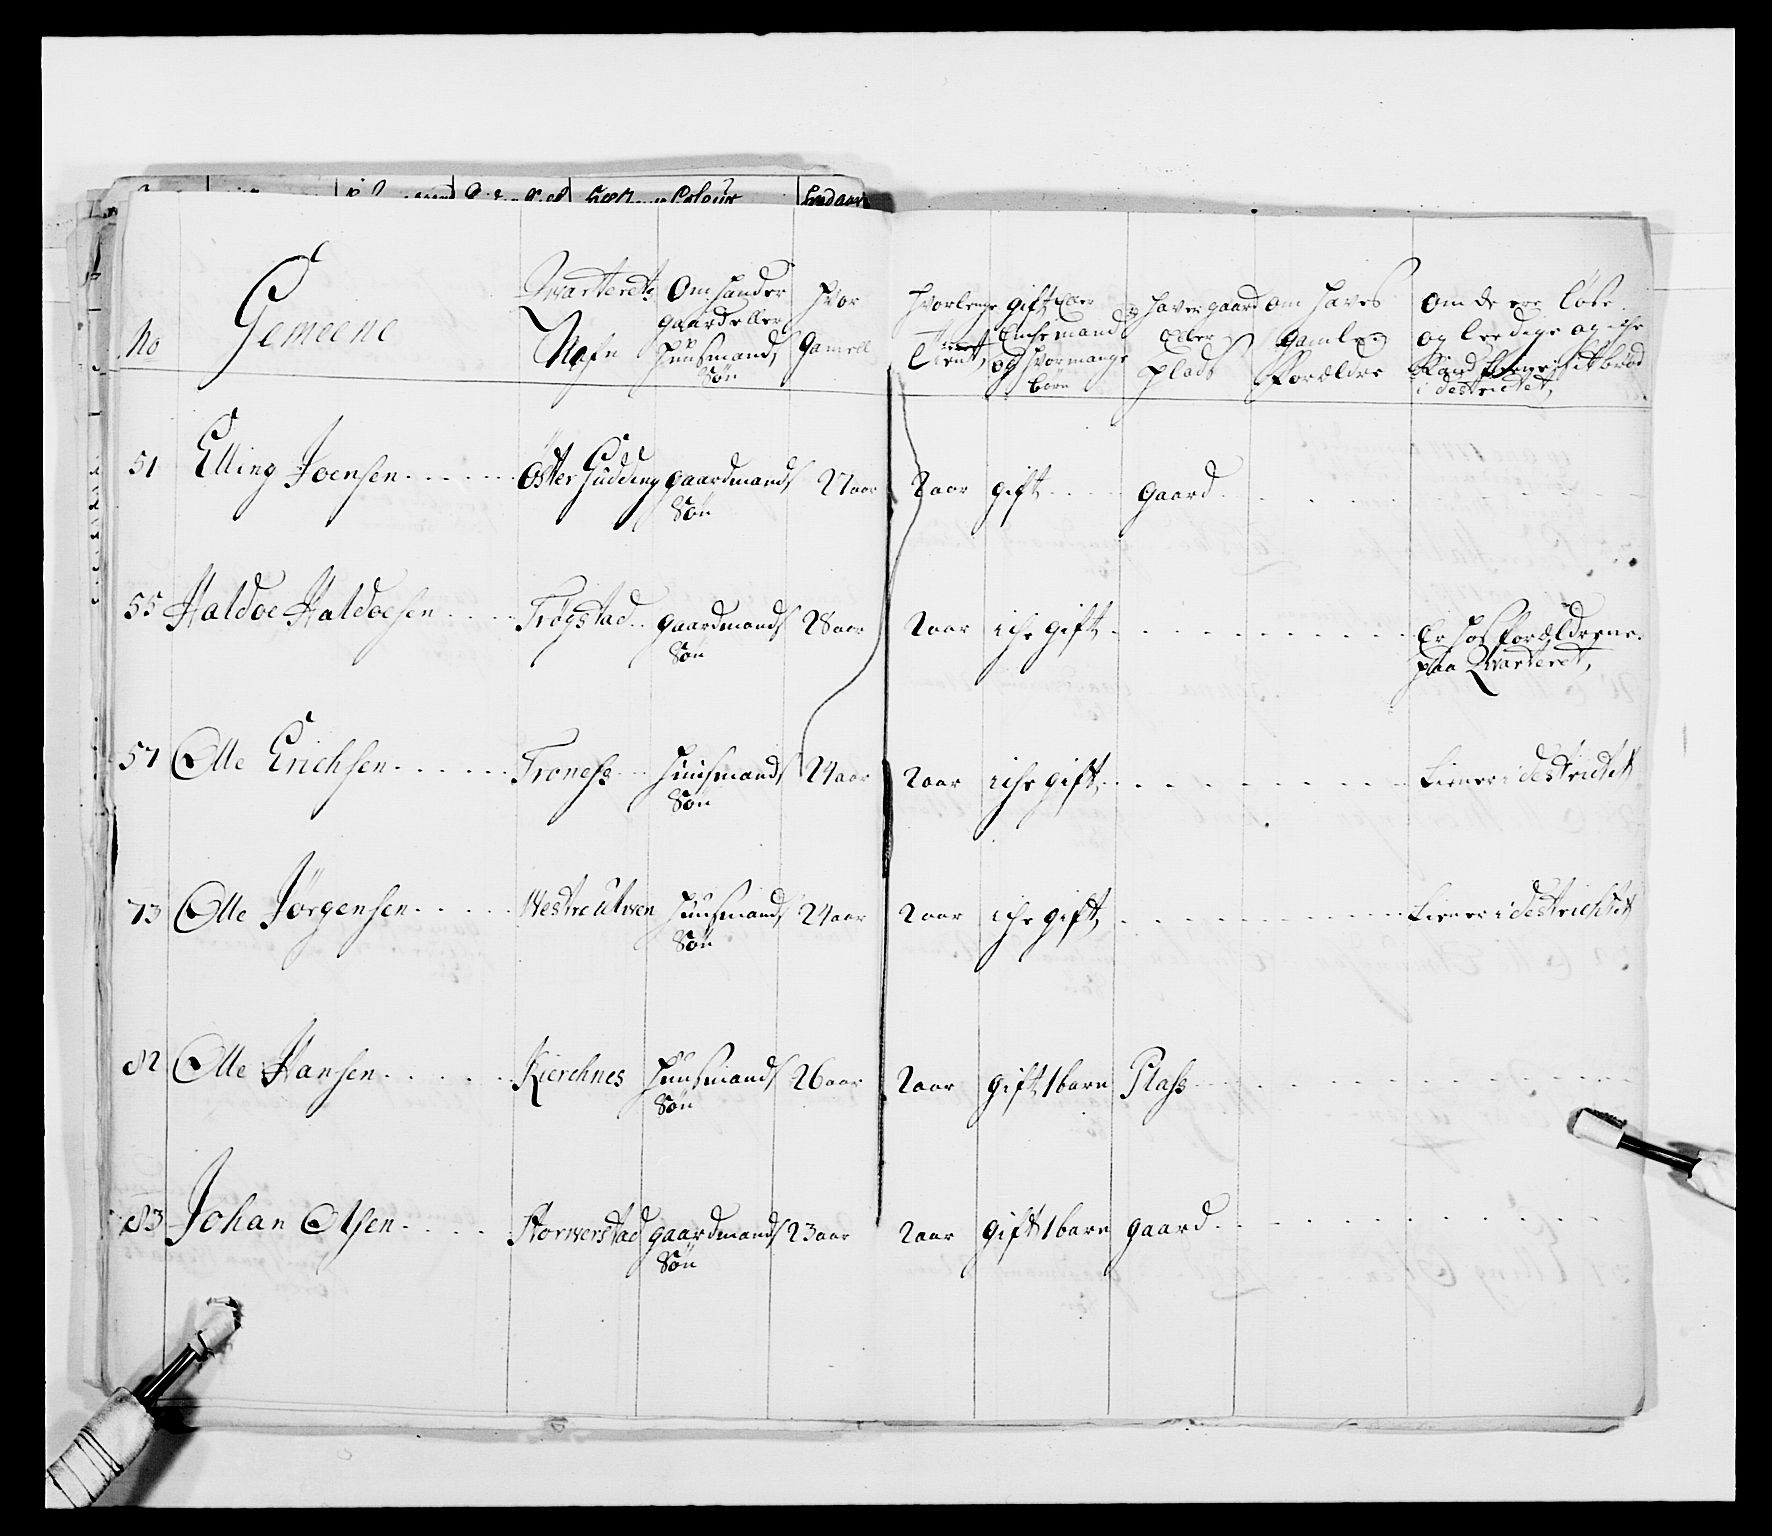 No
Gemeene
Qvarterets Nafn
Om hand er gaard eller huusmands Søn
hvor gamell
hvorlenge tient
gift eller Enche mand og hvor mange børn
haver gaard Eller plads
om haves gamle Forældre
om de ere løse og leedige og iche i destrictet,
51 Elling Joensen Öster Gudding gaardmands Søn 27 aar 2 aar gift gaard
55 Haldoe Haldoesen Trøgstad gaardmands Søn 28 aar 2 aar iche gift Er hos forældrene paa Qvarteret,
57 Olle Erichsen Troness huusmands Søn 24 aar 2 aar iche gift tiener i destrictet
73 Olle Jörgensen Westre Ulven huusmands Søn 24 aar 2 aar iche gift tiener i destrichtet
82 Olle Hansen Kierchnes huusmands Søn 26 aar 2 aar gift 1 barn Plass
83 Johan Olsen Storverstad gaardmands Søn 23 aar 2 aar gift 1 barn gaard